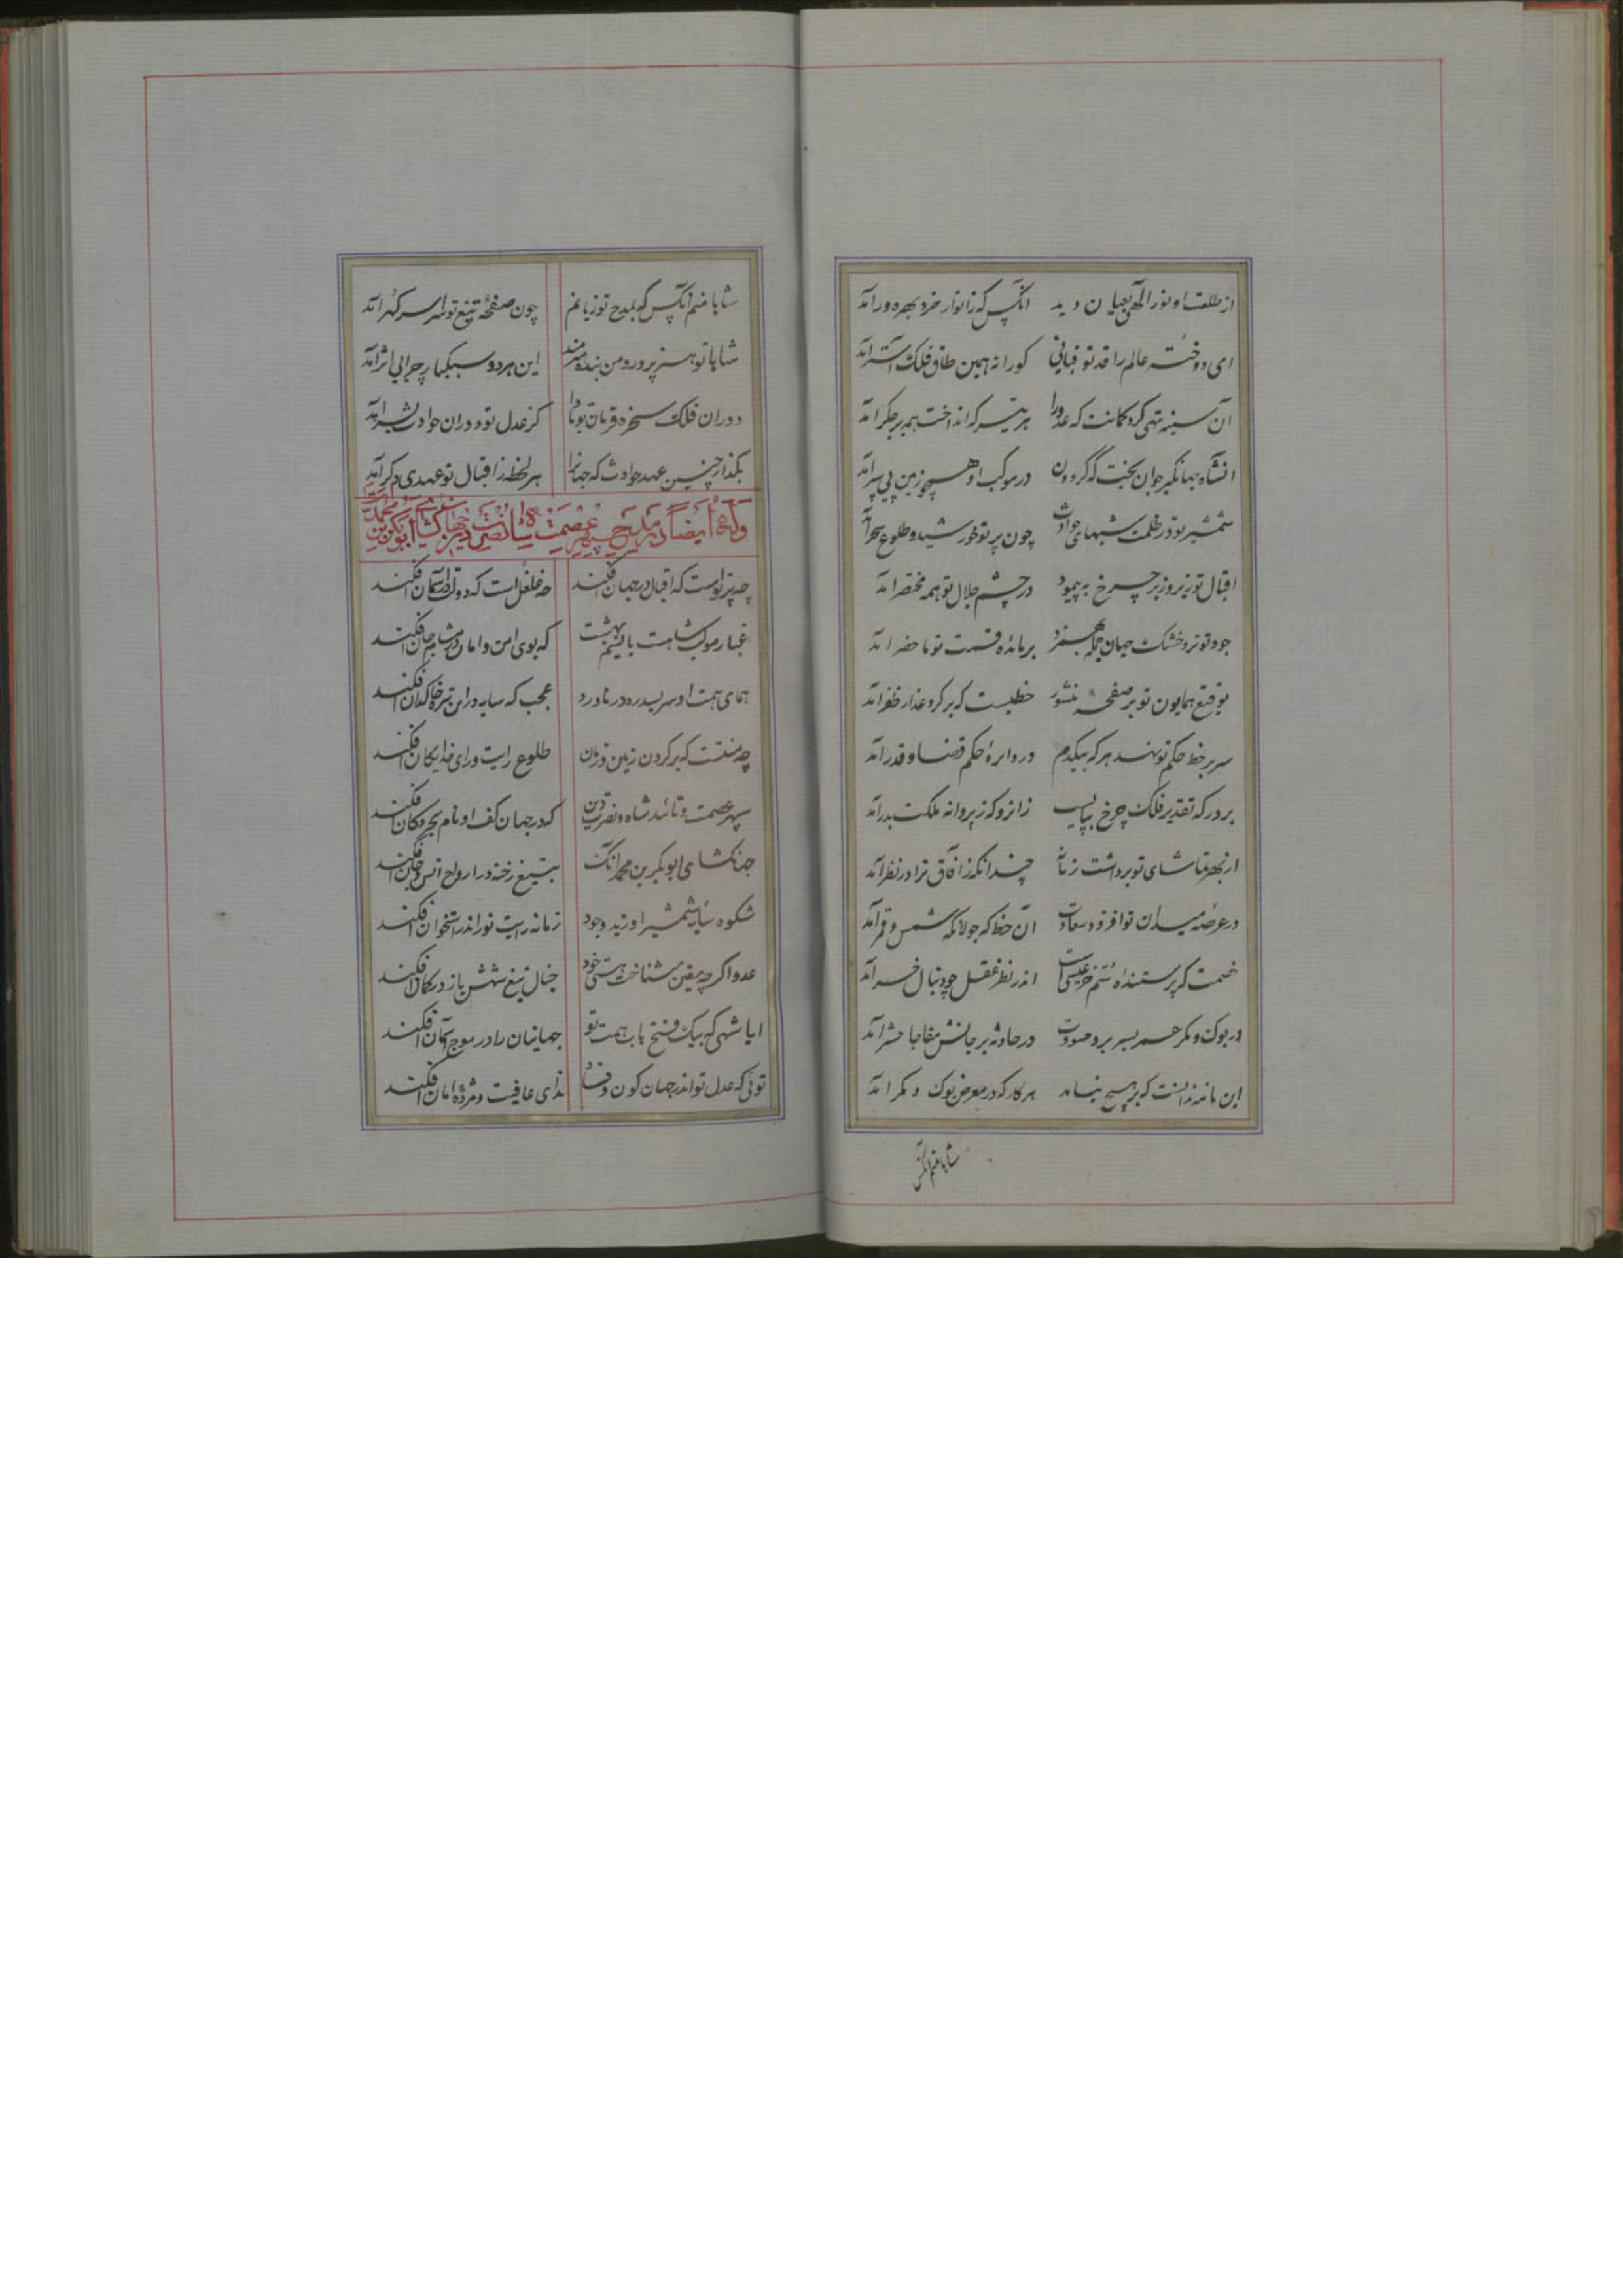 از طلعت او نور الهی بعیان دید انکس که ز انوار خرد بهره ور آمد
ای دوخته عالم را قد تو قبائی کورانه همین طاق فلک آستر آمد
آن سینه تهی کرد کمانت که عدو را هر تیر که انداخت همه بر جگر آمد
آنشاه جهانگیر جوان بخت که گردون در موکب او همچو زمین پی سپر آمد
شمشیر تو در ظلمت شبهای حوادث چون پرتو خورشید و طلوع سحر آمد
اقبال تو زیر و زبر چرخ بپیمود در چشم جلال تو همه مختصر آمد
جود تو تر و خشک جهان جمله بر مائده قسمت تو ما حضر آمد
توقیع همایون تو بر صفحه منشور خطیست که بر گرد عذار ظفر آمد
سر بر خط حکم تو نهد هر که بیکدم در دایره حکم قضا و قدر آمد
بر درکه تقدیر فلک چرخ زانرو که ز پروانه ملکت بدر آمد
از بهر تماشای تو برداشت زمانه چندانکه ز آفاق ترا در نظر آمد
در عرصه میدان تو افزود سعادت آن خط که جولانگه شمس و قمر آمد
خصمت که پرستنده سم خر عیسی است اندر نظر عقل چو دنبال خر آمد
در بوک و مگر عمر بسر برد در حادثه بر جانش مفاجا حشر آمد
این مایه ندانست که بر هیچ نیاید هر کار که در معرض بوک و مگر آمد
شاها منم آنکس
شاها منم آنکس که بمدح تو زبانم چون صفحه تیغ تو سراسر گهر آمد
شاها تو هنر پرور و من بنده هنرمند این هر دو بیکبار چرا بی اثر آمد
دوران فلک سخره فرمان تو بادا کز عدل تو دوران حوادث بسر آمد
بگذار چنین عهد حوادث که جهانرا هر لحظه ز اقبال تو عهدی دگر آمد
وله ایضاً در مدح سپهر عصمت شاه نصرت جهان گشای ابوبکر بن محمد
چه پرتو است که اقبال در جهان افکند چه غلغل است که دولت در آسمان افکند
غبار موکب شاهست یا نسیم بهشت که بوی امن و امان در مشام جان افکند
همای همت او سر بسدره در ناورد عجب که سایه در این تیره خاکدان افکند
چه منتست که بر گردن زمین و زمان طلوع رایت و رای خدایگان افکند
سپهر عصمت و تائید شاه نصرت دین که در جهان کف او نام بحر و کان افکند
جهانگشای ابوبکر بن محمد آنک بتیغ رخنه در ارواح انس و جان افکند
شکوه سایه شمشیر او زبد وجود زمانه راست تو اندر استخوان افکند
عدو اگر چه یقین میشناخت هستی خود خیال تیغ شهش باز در گمان افکند
ایا شهی که بیک فتح باب همت تو جهانیان را در موج افکند
توئی که عدل تو اندر جهان کون و فساد ندای عافیت و مژده امان افکند